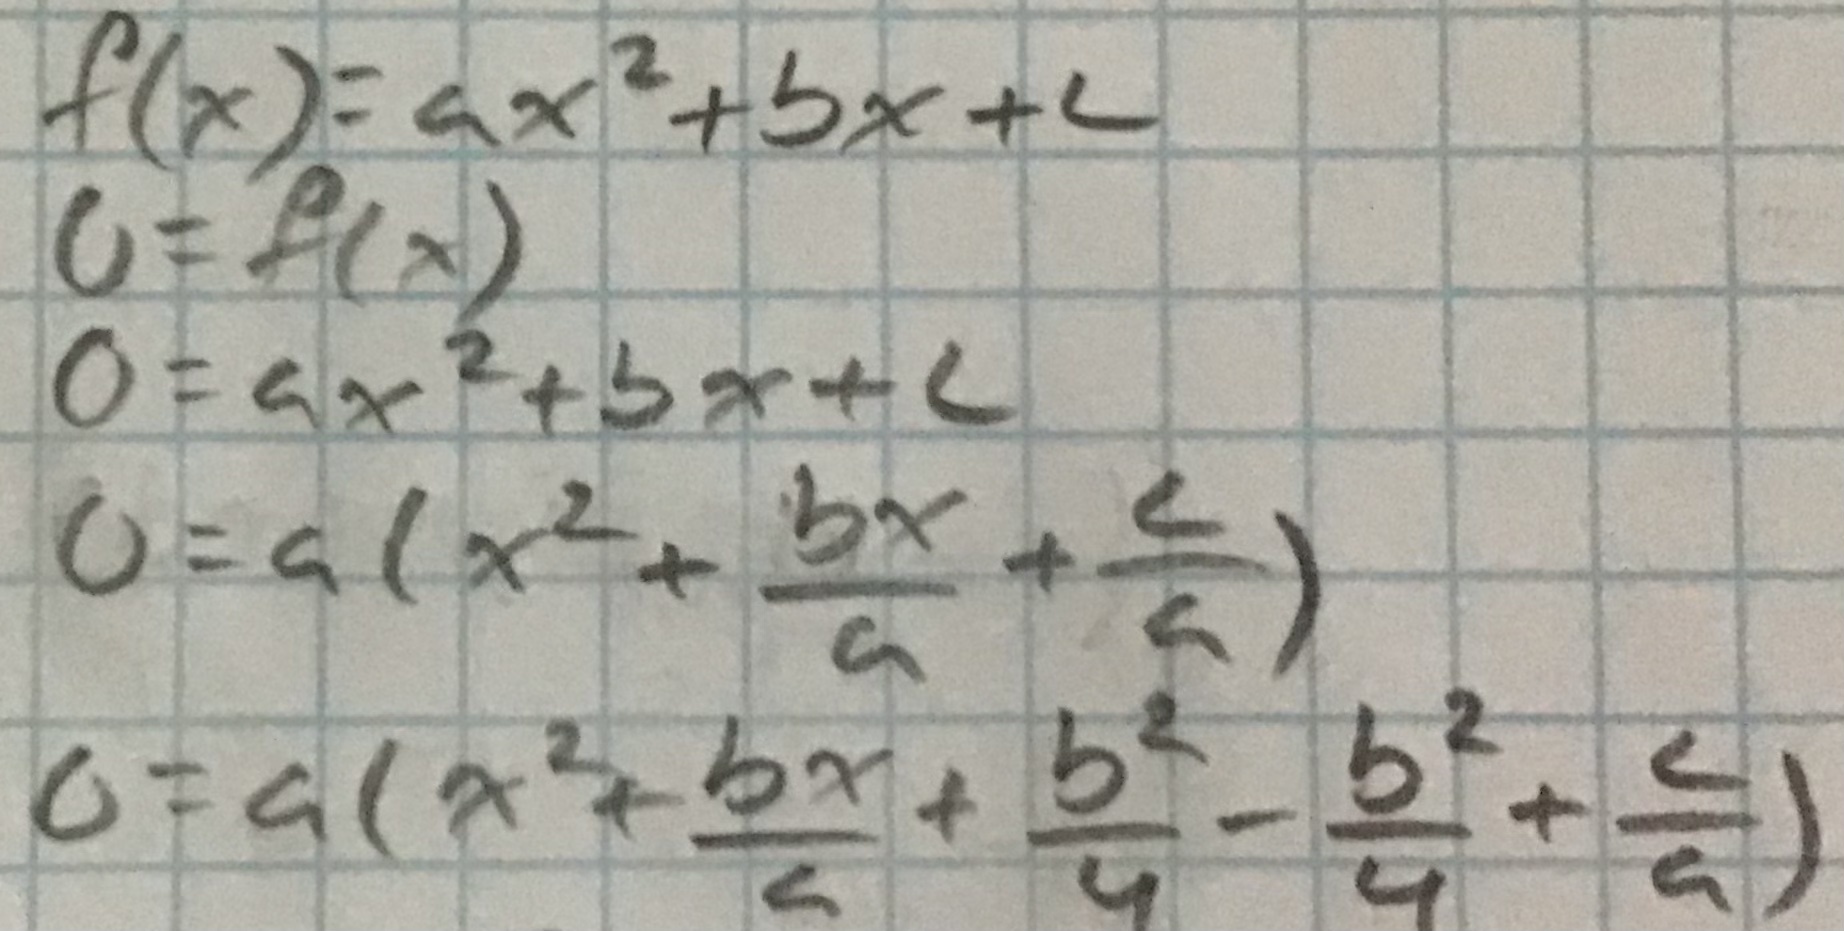 f(x) = ax² + bx + c
0 = f(x)
0 = ax² + bx + c
0 = a(x² + bx/a + c/a)
0 = a(x² + bx/a + b²/4 - b²/4 + c/a)